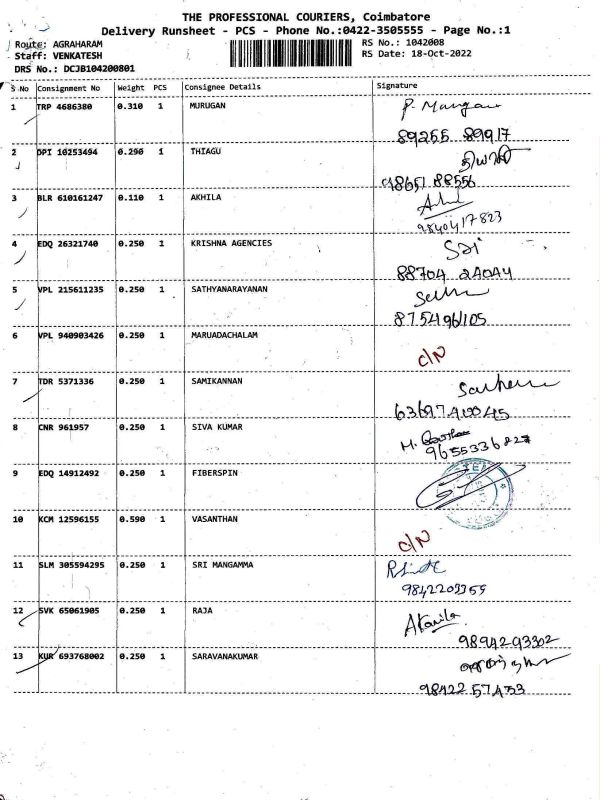 THE PROFESSIONAL COURIERS, Coimbatore
Delivery Runsheet - PCS - Phone No.:0422-3505555 - Page No.:1
Route: AGRAHARAM
Staff: VENKATESH
DRS No.: DCJB104200801
RS No.: 1042008
RS Date: 18-Oct-2022
S No Consignment No Weight PCS Consignee Details Signature
1 TRP 4686380 0.310 1 MURUGAN
P. Murugan
89255 89917
2 DPI 10253494 0.290 1 THIAGU
98651 88556
3 BLR 610161247 0.110 1 AKHILA
9840417823
4 EDQ 26321740 0.250 1 KRISHNA AGENCIES
Sai
88704 24044
5 VPL 215611235 0.250 1 SATHYANARAYANAN
8754961105
6 VPL 940903426 0.250 1 MARUADACHALAM
C/N
7 TDR 5371336 0.250 1 SAMIKANNAN
8 CNR 961957 0.250 1 SIVA KUMAR
9655336827
9 EDQ 14912492 0.250 1 FIBERSPIN
10 KCM 12596155 0.590 1 VASANTHAN
C/N
11 SLM 305594295 0.250 1 SRI MANGAMMA
9842209359
12 SVK 65061905 0.250 1 RAJA
9894293302
13 KUR 693768002 0.250 1 SARAVANAKUMAR
98422 57433